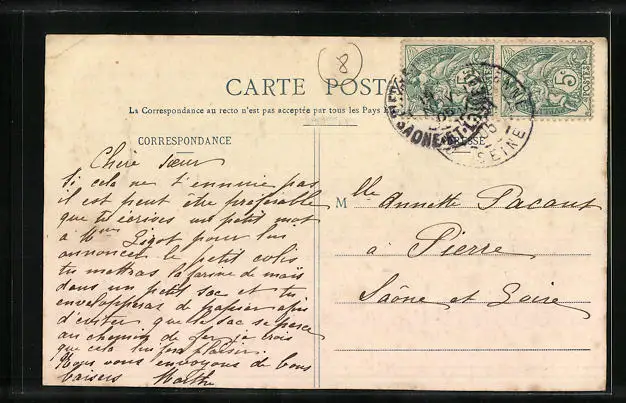 8
CARTE POST
La Correspondance au recto n'est pas acceptée par tous les Pays
CORRESPONDANCE
SAONE-ET-L
SEINE
5
POSTES
Chère sœur
Si cela ne t'ennuie pas
il est peut être préférable
que tu écrives un petit mot
à Mme Zigot pour lui
annoncer le petit colis
tu mettras la farine de maïs
dans un petit sac et tu
envelopperas de papier afin
d'éviter que le sac se perce
au chemin de fer je crois
que cela lui fera plaisir.
Nous vous envoyons de bons
baisers Marthe
Mlle Annette Pacaut
à Pierre
Saône et Loire